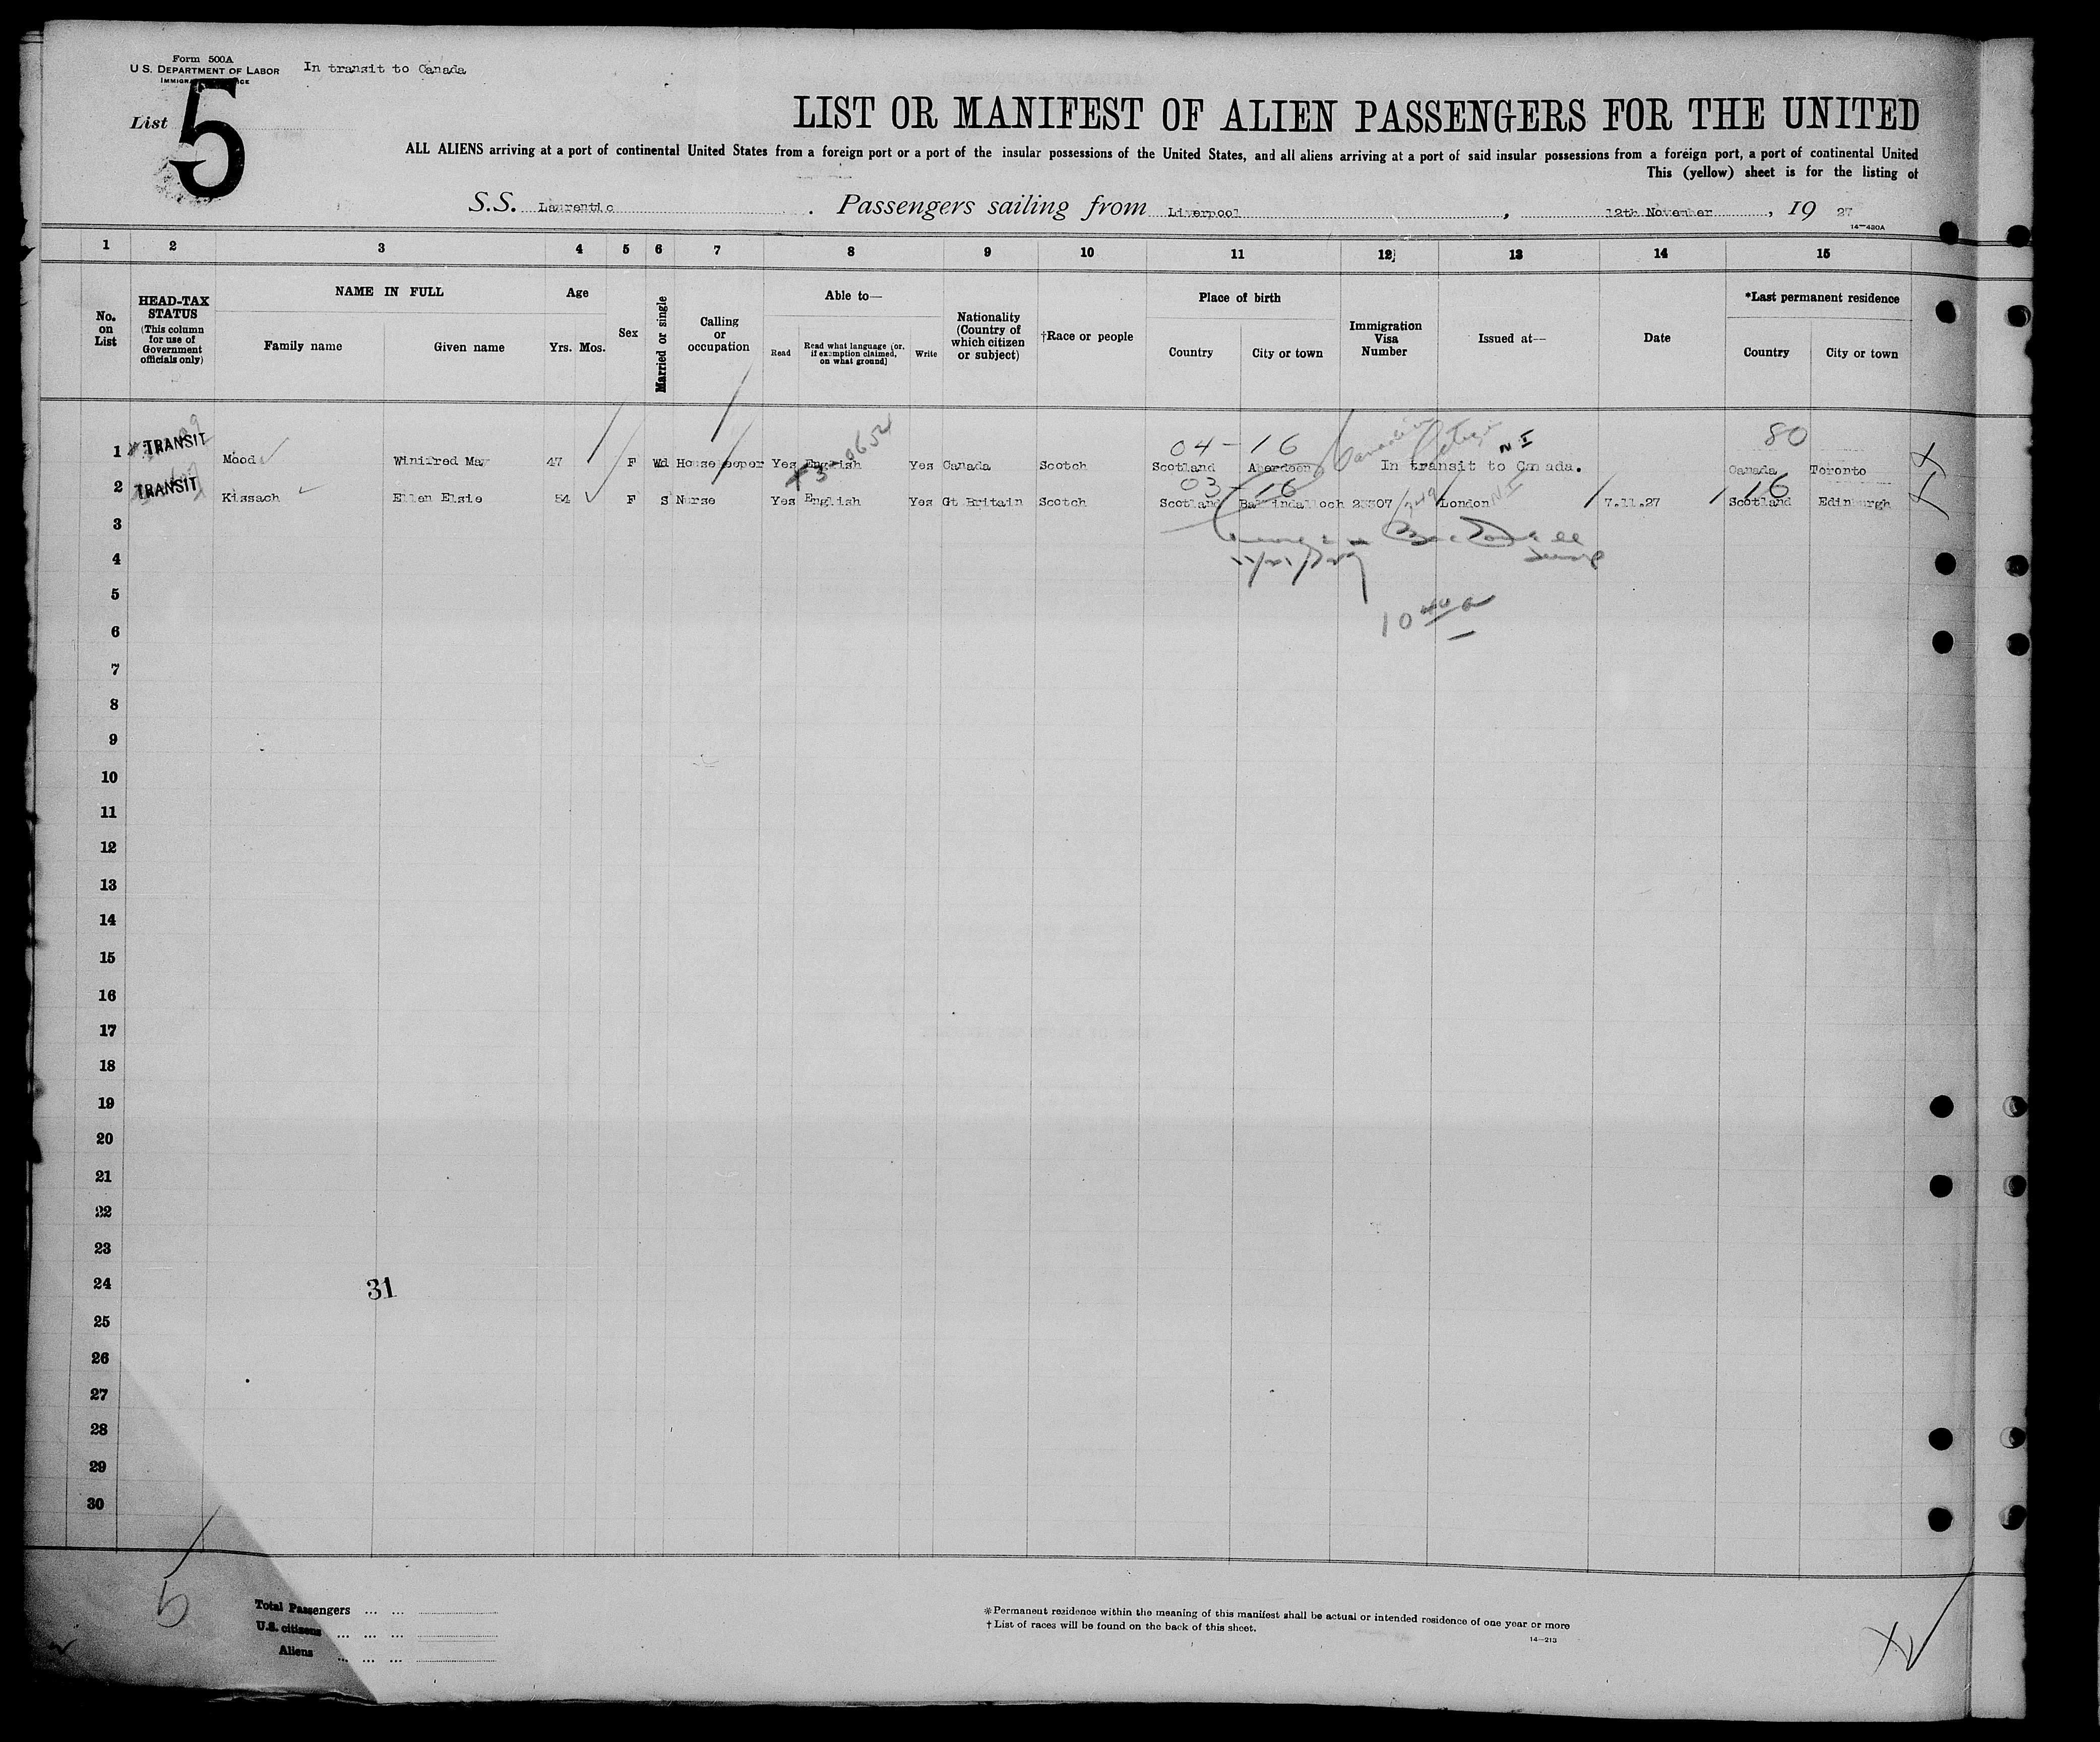 Form 500A
U S. DEPARTMENT OF LABOR
In transit to Canada
List 5
LIST OR MANIFEST OF ALIEN PASSENGERS FOR THE UNITED
ALL ALIENS arriving at a port of continental United States from a foreign port or a port of the insular possessions of the United States, and all aliens arriving at a port of said insular possessions from a foreign port, a port of continental United
This (yellow) sheet is for the listing of
S.S. Laurentic. Passengers sailing from Liverpool, 12th November, 19 27
14—430A
1 2 3 4 5 6 7 8 9 10 11 12 13 14 15
No. on List
HEAD-TAX STATUS (This column for use of Government officials only)
NAME IN FULL
Family name Given name
Age
Yrs. Mos.
Sex
Married or single
Calling or occupation
Able to—
Read Read what language [or, if exemption claimed, on what ground] Write
Nationality (Country of which citizen or subject)
†Race or people
Place of birth
Country City or town
Immigration Visa Number
Issued at—
Date
*Last permanent residence
Country City or town
04-16 N I 80
1 TRANSIT Mood Winifred May 47 F Wd Housekeeper Yes English Yes Canada Scotch Scotland Aberdeen In transit to Canada. Canada Toronto
03-16 16
2 TRANSIT Kissach Ellen Elsie 54 F S Nurse Yes English Yes Gt Britain Scotch Scotland Ballindalloch 23307 London 7.11.27 Scotland Edinburgh
3
4
5
10 40 a
6
7
8
9
10
11
12
13
14
15
16
17
18
19
20
21
22
23
24
31
25
26
27
28
29
30
5
Total Passengers ... ...
U.S. citizens ... ... ...
Aliens ... ... ...
*Permanent residence within the meaning of this manifest shall be actual or intended residence of one year or more
†List of races will be found on the back of this sheet.
14—213